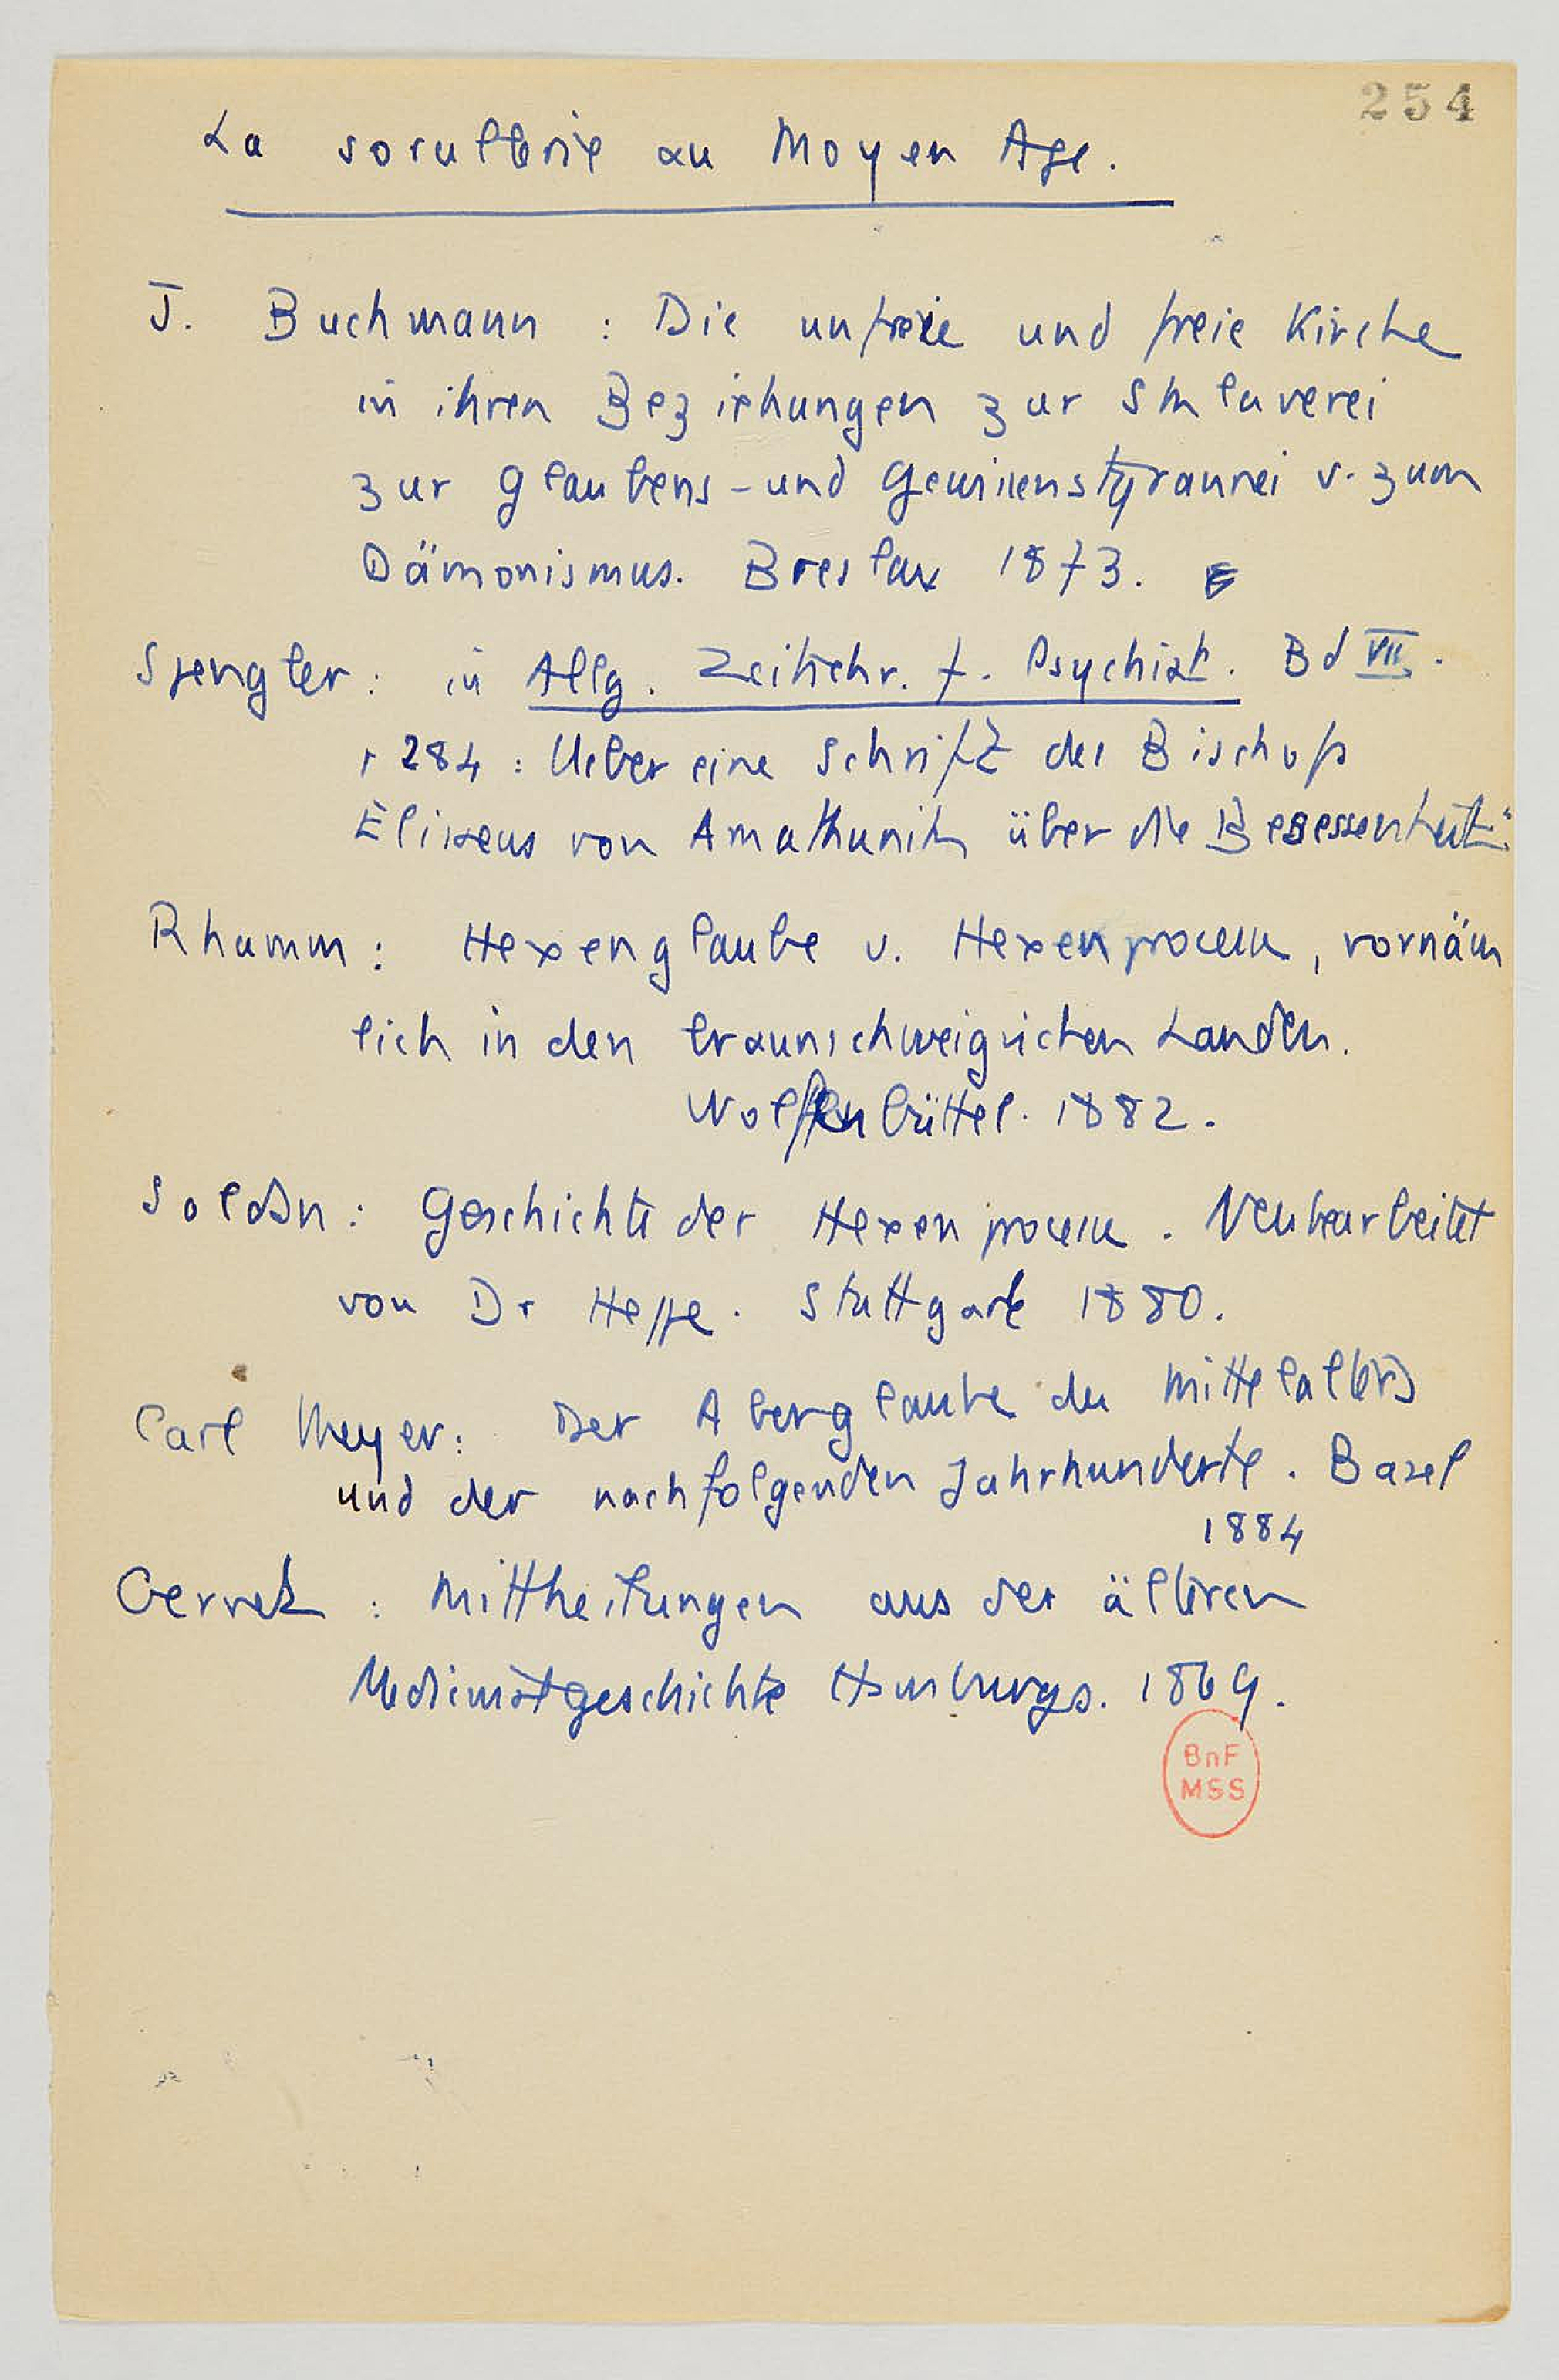 254
La sorcellerie au Moyen Age.
J. Buchmann : Die unfreie und freie Kirche
in ihren Beziehungen zur Sklaverei
zur Glaubens- und Gewissenstyrannei u. zum
Dämonismus. Breslau 1873.
Spengler : in Allg. Zeitschr. f. Psychiat. Bd VII.
p 284 : Ueber eine Schrift des Bischofs
Eliseus von Amathunik über die Besessenheit"
Rhamm : Hexenglaube u. Hexenprocesse, vornäm
lich in den braunschweigischen Landen.
Wolfenbüttel. 1882.
Soldan : Geschichte der Hexenprocesse. Neubearbeitet
von Dr Heppe. Stuttgart 1880.
Carl Meyer : Der Aberglaube des Mittelalters
und der nachfolgenden Jahrhunderte. Basel
1884
Gernet : Mittheilungen aus der älteren
Medicinalgeschichte Hamburgs. 1869.
BnF
MSS